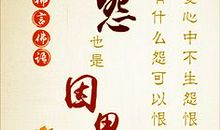 爱心中不生怨恨
有什么怨可以恨
怨也是因果
佛言佛语